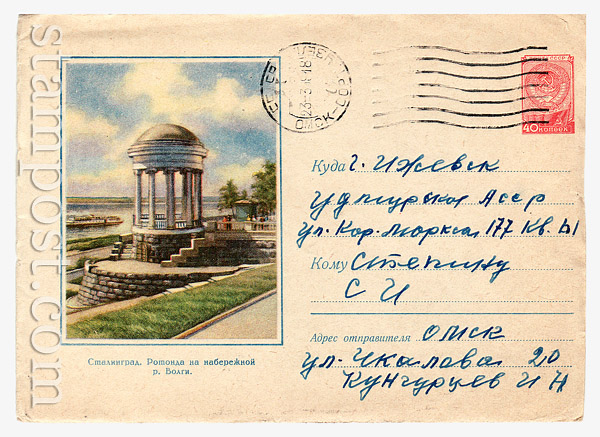 stampost.com
СССР
40 КОПЕЕК
ОМСК
Куда г. Ижевск
Удмурская Асср
ул. Кар. Маркса 177 кв. 61
Кому Степину
С И
Адрес отправителя Омск
ул. Чкалава 20
Кунгурцев И Н
Сталинград. Ротонда на набережной
р. Волги.